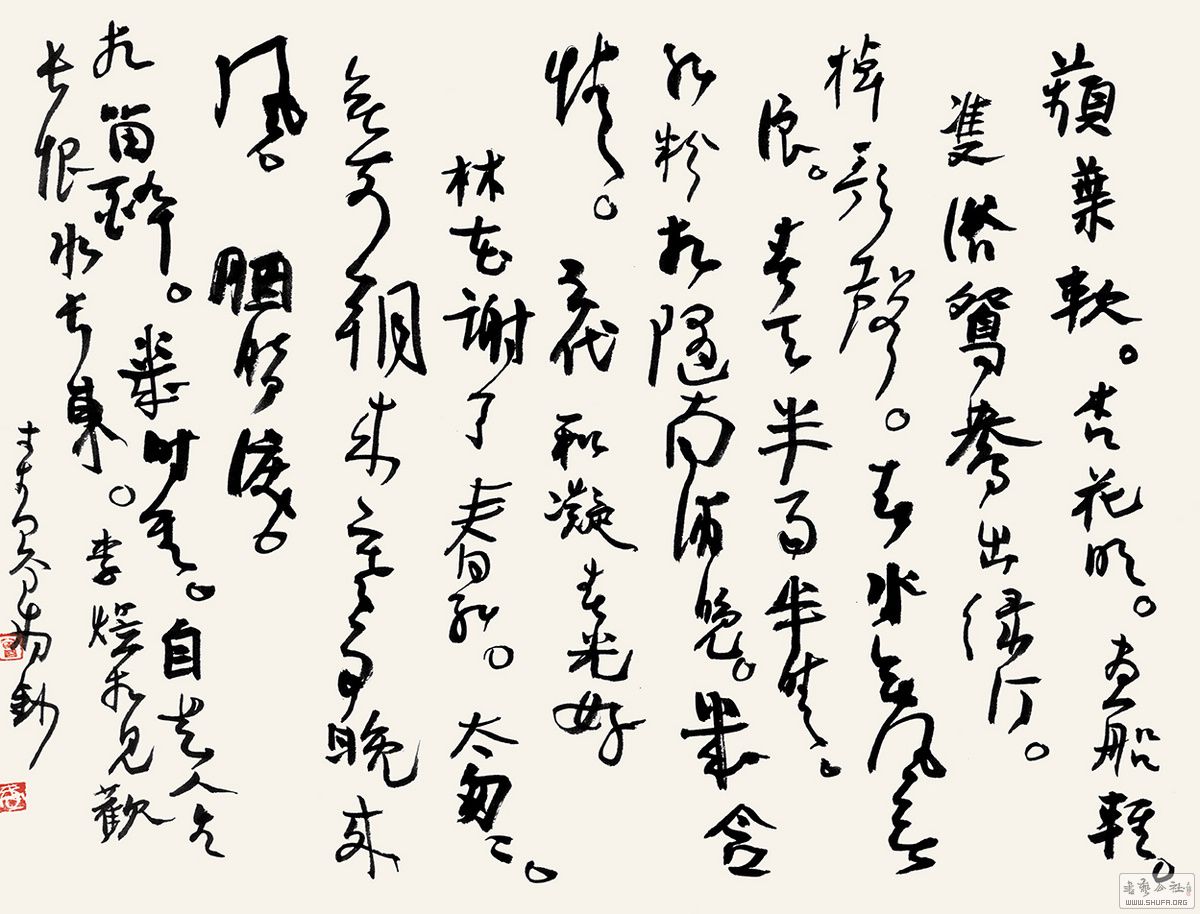 蘋葉軟。杏花明。畫船輕。
雙浴鴛鴦出綠汀。
棹歌聲。春水無風無
浪。春天半雨半晴。
紅粉相隨南浦晚。幾含
情。五代和凝春光好
林花謝了春紅。太匆匆。
無奈朝來寒雨晚來
風。胭脂淚。
相留醉。幾時重。自是人生
長恨水長東。李煜相見歡
鈔
書藝公社
WWW.SHUFA.ORG